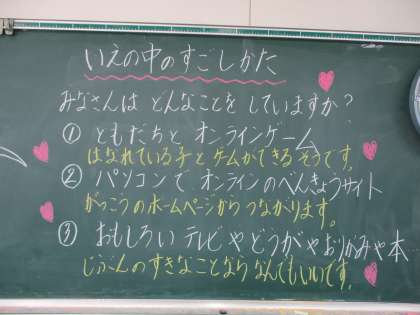 いえの中のすごしかた
みなさんは どんなことを していますか?
① ともだちと オンラインゲーム
はなれている子と ゲームができる そうです。
② パソコンで オンラインのべんきょうサイト
がっこうのホームページから つながります。
③ おもしろい テレビや どうがや おりがみや 本
じぶんの すきなことなら なんでもいいです。